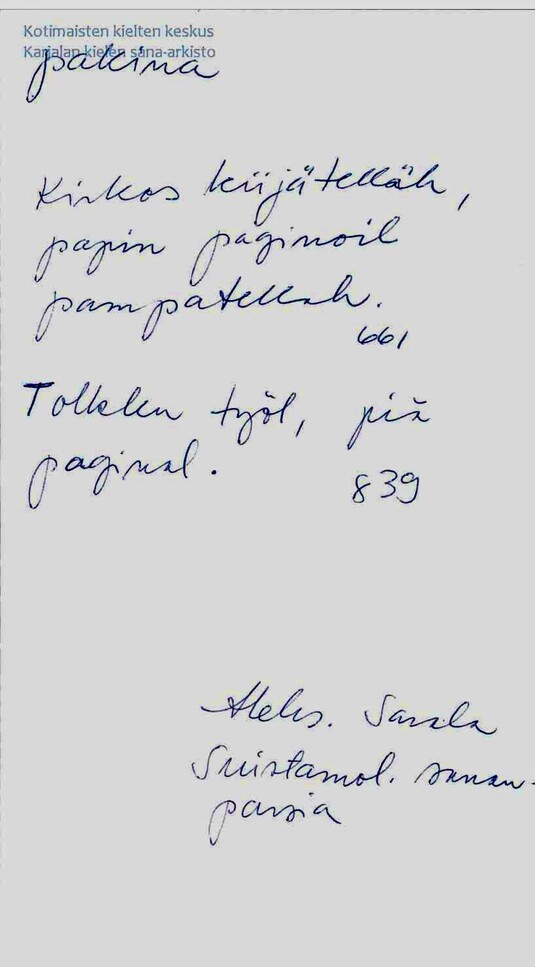 Kotimaisten kielten keskus
Karjalan kielen sana-arkisto
pakina
Kirkos kiijätelläh,
papin paginoil
pampatellah.
661
Tolkku työl, piä
paginal.
839
Aleks. Sarala
Suistamol. sanan-
parsia